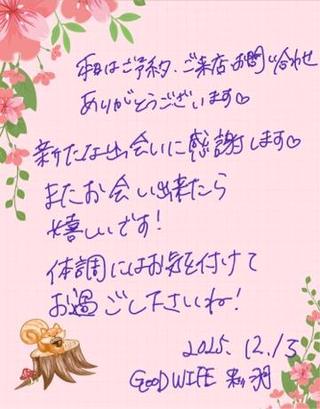 本日はご予約、ご来店、お問い合わせ
ありがとうございます♡
新たな出会いに感謝します♡
またお会い出来たら
嬉しいです!
体調にはお気を付けて
お過ごし下さいね!
2025.12.13
GOOD WIFE